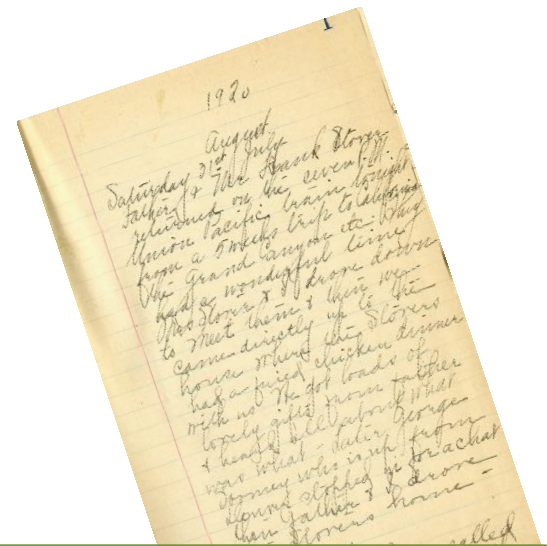 1
1920
August
Saturday 31st July
Father & Mr Frank Stover
returned on the seven
Union Pacific train tonight
from a 3 weeks trip to California
the Grand Canyon etc They
had a wonderful time
Mrs Stover & I drove down
to meet them & then we
came directly up to the
house where the Stovers
had a fried chicken dinner
with us We got loads of
lovely gifts from father
& heard all about what
was what - later George
who is up from
Denver stopped in for a chat
then father & I drove
Stovers home -
called